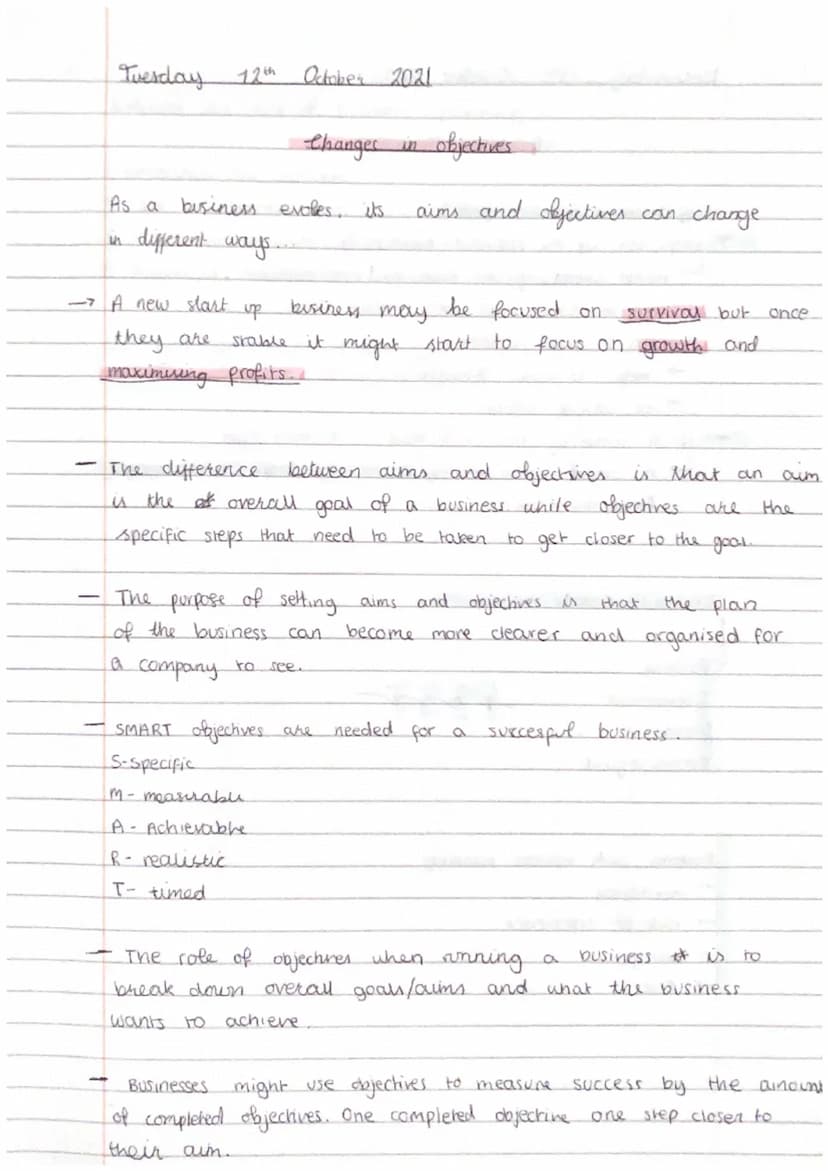 Tuesday 12th October 2021
Changes in objectives
As a business evoles, its aims and objectives can change
in different ways...
→ A new start up business may be focused on survival but once
they are stable it might start to focus on growth and
maximising profits.
- The difference between aims and objectives is that an aim
is the overall goal of a business while objectives are the
specific steps that need to be taken to get closer to the goal.
- The purpose of setting aims and objectives is that the plan
of the business can become more clearer and organised for
a company to see.
- SMART objectives are needed for a succesful business.
S-specific
M- measurable
A - Achievable
R- realistic
T- timed
- The role of objectives when running a business is to
break down overall goals/aims and what the business
wants to achieve.
- Businesses might use objectives to measure success by the amount
of completed objectives. One completed objective one step closer to
their aim.